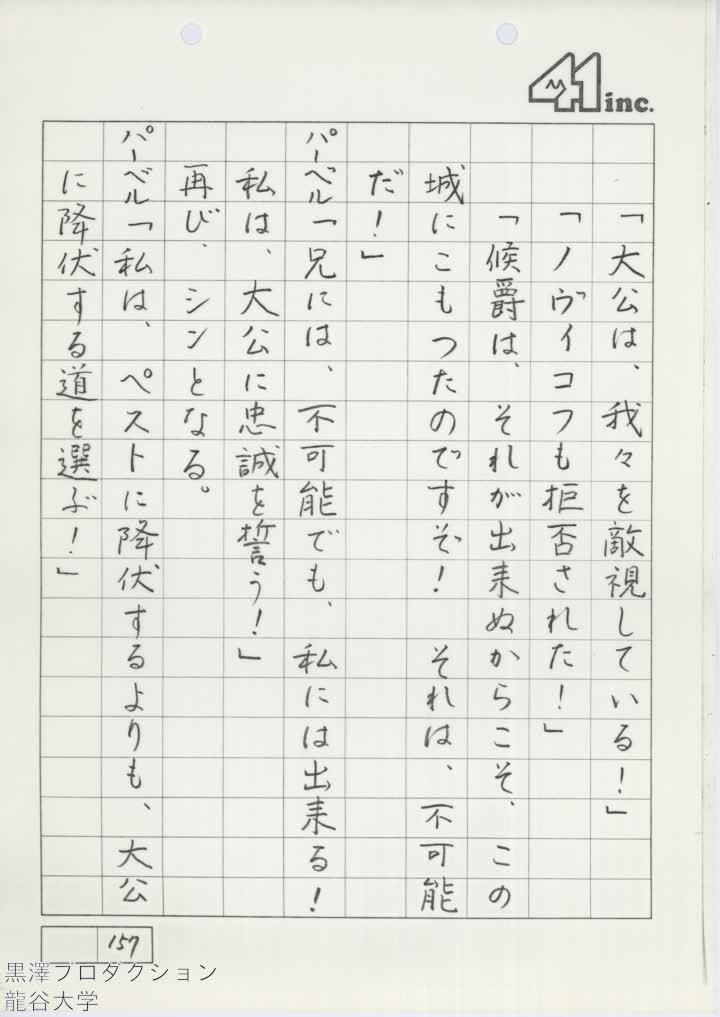 41 inc.
「大公は、我々を敵視している！」
「ノヴイコフも拒否された！」
「候爵は、それが出来ぬからこそ、この
城にこもつたのですぞ！　それは、不可能
だ！」
パーベル「兄には、不可能でも、私には出来る！
私は、大公に忠誠を誓う！」
再び、シンとなる。
パーベル「私は、ペストに降伏するよりも、大公
に降伏する道を選ぶ！」
157
黒澤プロダクション
龍谷大学